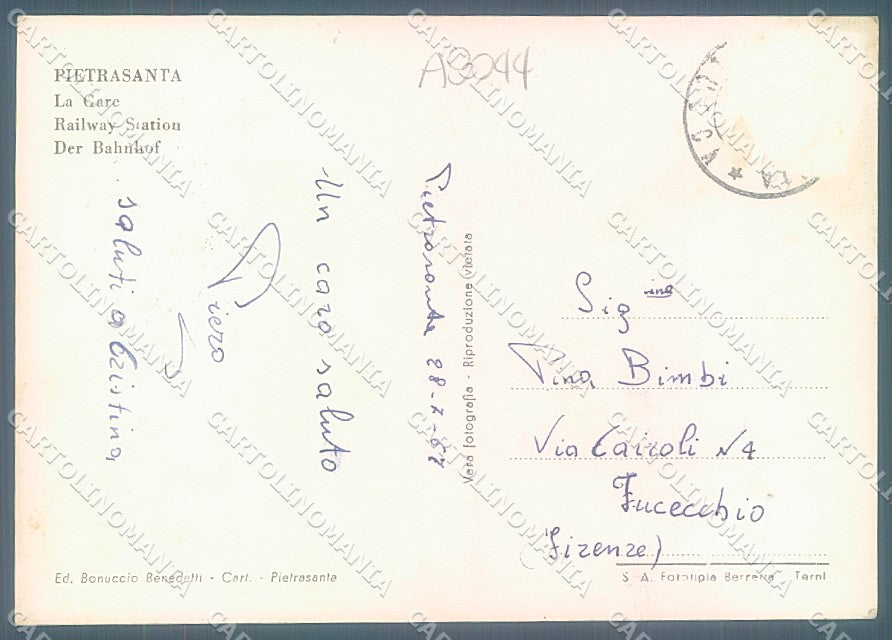 PIETRASANTA
La Gare
Railway Station
Der Bahnhof
A3044
Pietrasanta 28-X-57
Un caro saluto
Piero
saluti a Cristina,
Vera fotografia - Riproduzione vietata
Sig.ina
Tina Bimbi
Via Cairoli N 4
Fucecchio
(Firenze)
Ed. Bonuccio Benedetti - Cart. - Pietrasanta
S. A. Fototipia Berretta Terni
CARTOLINOMANIA